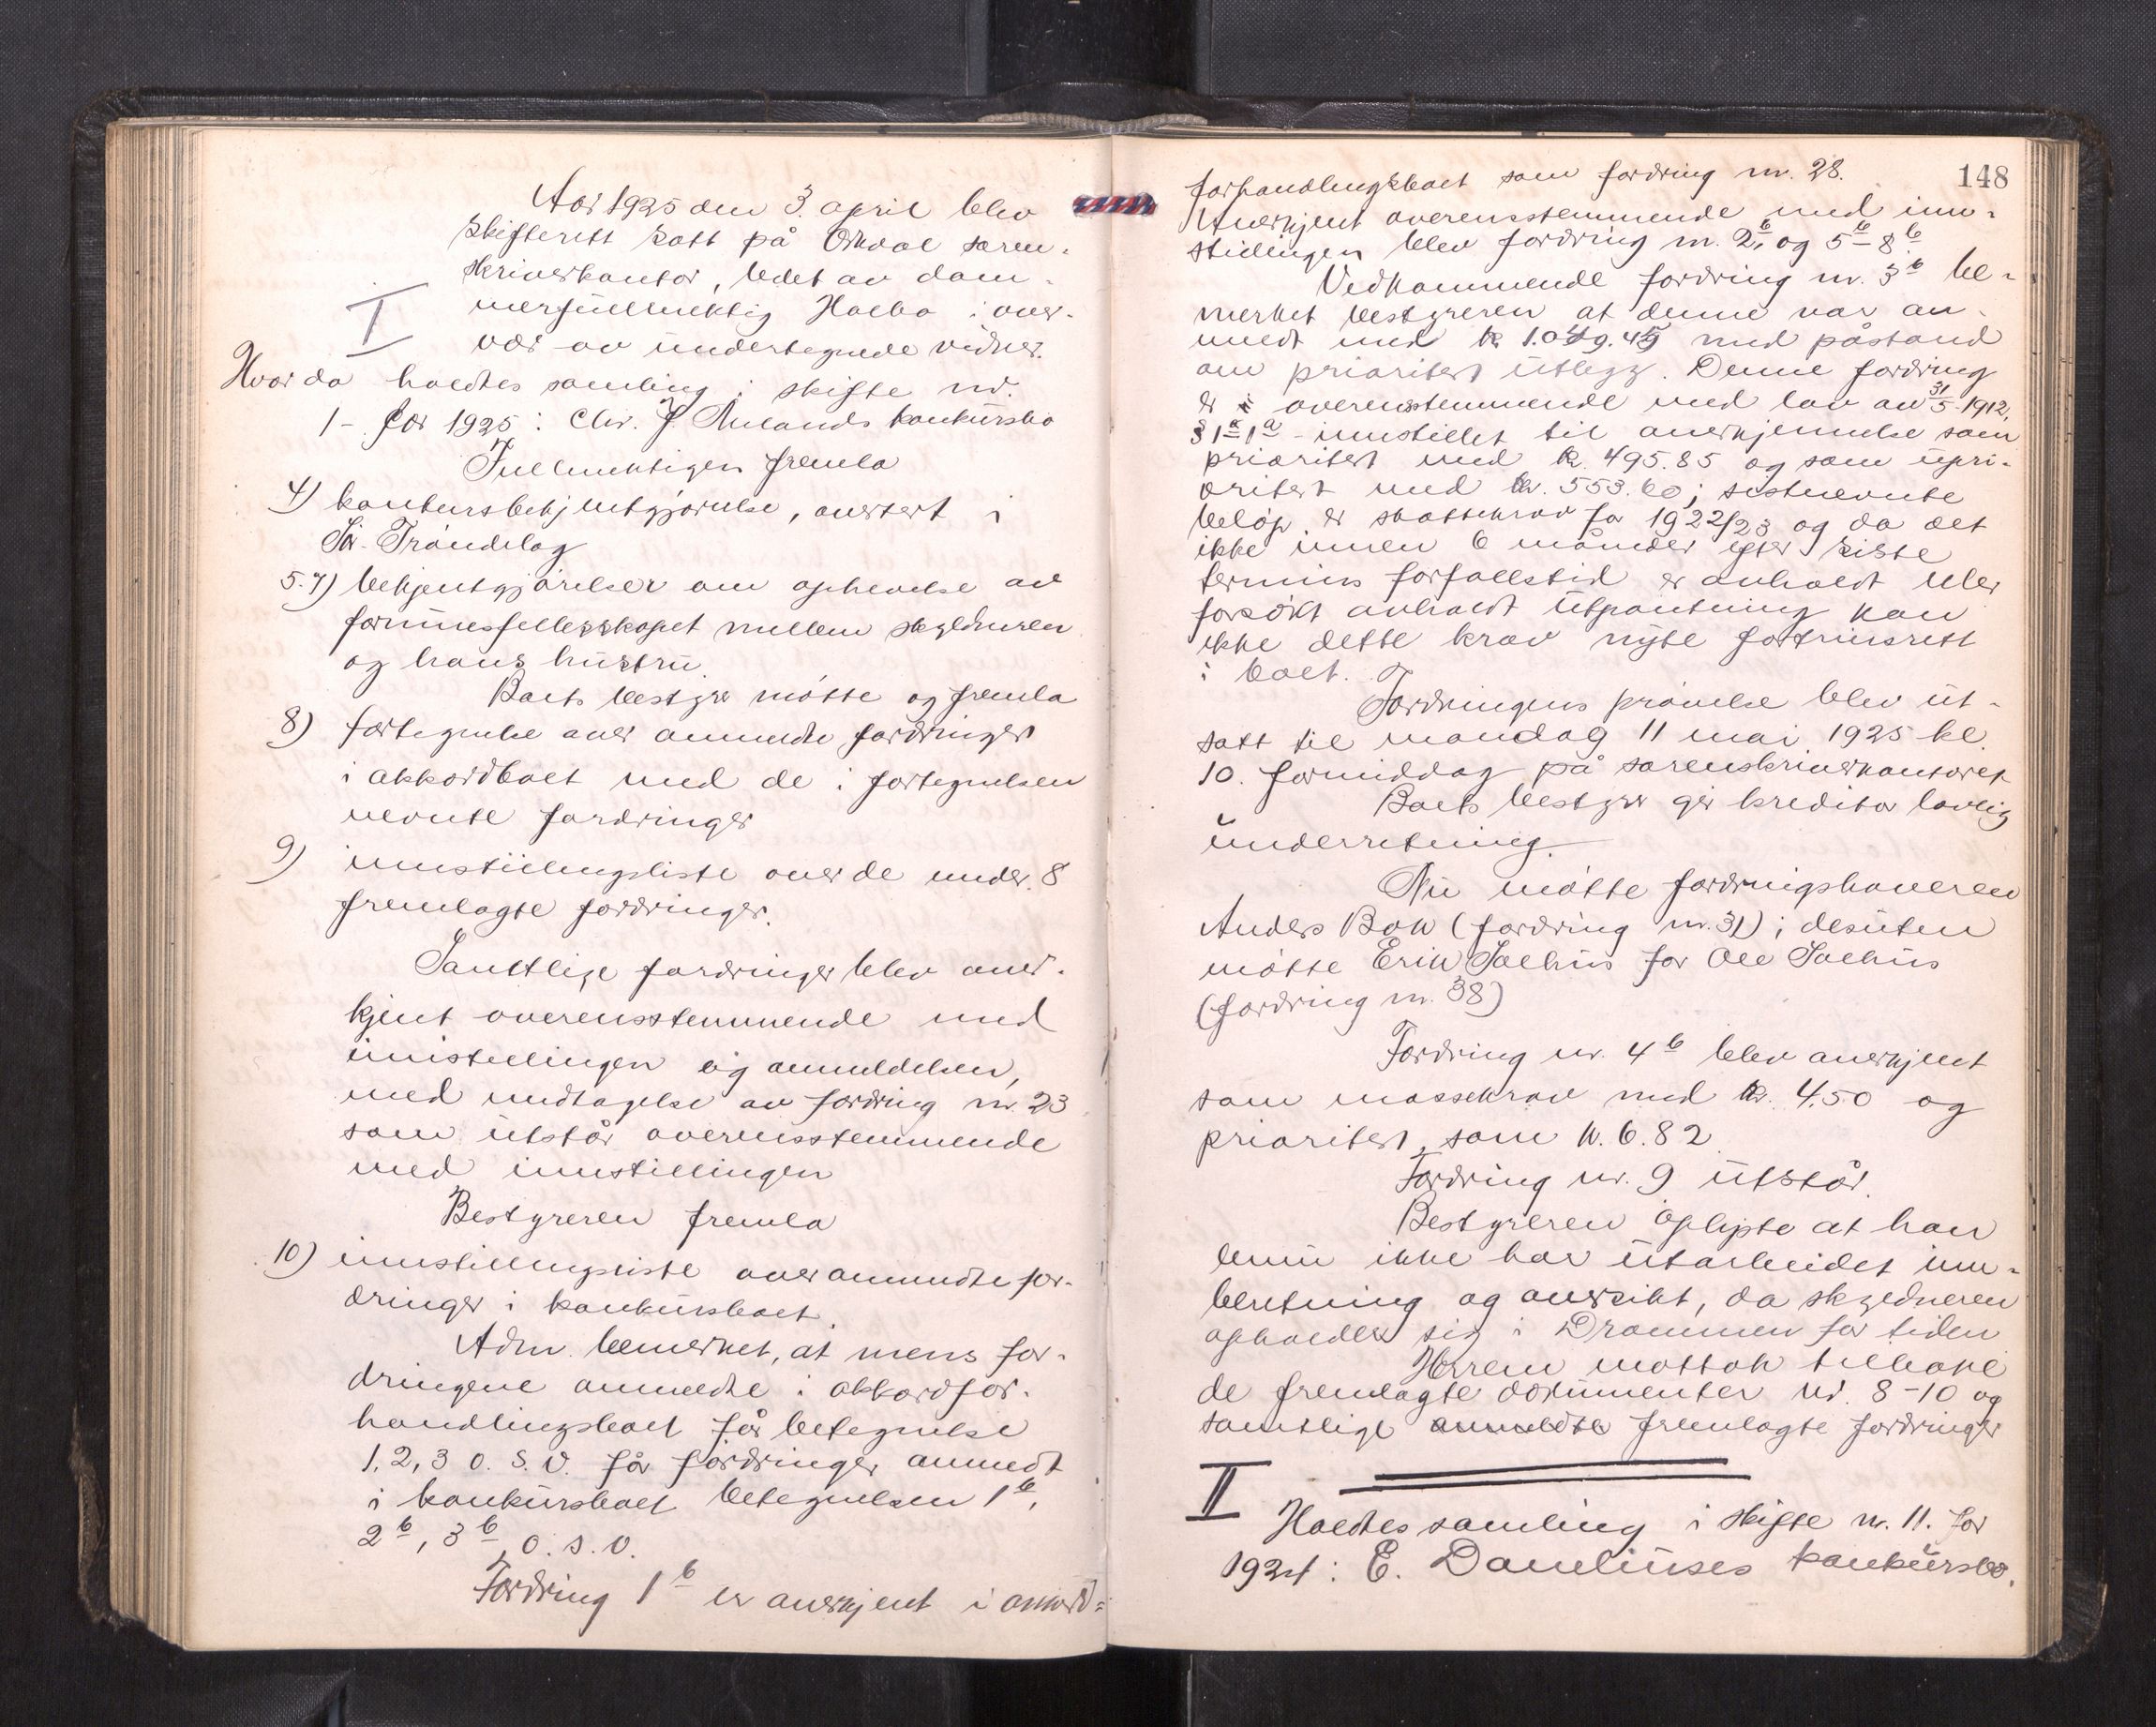 Aar 1925 den 3. april blev
skifterett satt på Orkdal soren-
skriverkontor, ledet av dom-
I
merfullmektig Holbo i over-
vær av undertegnede vidner.
Hvor da holdtes samling i skifte nr.
1 - for 1925: Chr. J. Aulands konkursbo
Fullmektigen fremla
4) konkursbekjentgjørelse, avertert i
Sør-Trøndelag
5.7) bekjentgjørelser om ophevelse av
formuesfellesskapet mellem skyldneren
og hans hustru.
Boets bestyrer møtte og fremla
8) fortegnelse over anmeldte fordringer
i akkordboet med de i fortegnelsen
nevnte fordringer
9) innstillingsliste over de under 8
fremlagte fordringer.
Samtlige fordringer blev aner-
kjent overensstemmende med
innstillingen og anmeldelsen,
med undtagelse av fordring nr. 23
som utstår overensstemmende
med innstillingen
Bestyreren fremla
10) innstillingsliste over anmeldte for-
dringer i konkursboet.
Adm. bemerket, at mens for-
dringene anmeldte i akkordfor-
handlingsboet får betegnelse
1, 2, 3 o.s.v. får fordringer anmeldt
i konkursboet betegnelsen 1b,
2b, 3b, o.s.v.
Fordring 1b er anerkjent i akkord-
148
forhandlingsboet som fordring nr. 28.
Anerkjent overensstemmende med inn-
stillingen blev fordring nr. 2b, og 5b-8b.
Vedkommende fordring nr. 3b be-
merket bestyreren at denne var an-
meldt med kr 1.049.45 med påstand
om prioritert utlegg. Denne fordring
er i overensstemmende med lov av 31/5-1912,
§1 1a innstillet til anerkjennelse som
prioritert med kr. 495.85 og som upri-
oritert med kr. 553.60; sistnevnte
beløp er skattekrav for 1922/23 og da det
ikke innen 6 måneder efter siste
termins forfallstid er avholdt eller
forsøkt avholdt utpantning kan
ikke dette krav nyte fortrinsrett
i boet.
Fordringens prøvelse blev ut-
satt til mandag 11 mai 1925 kl.
10. formiddag på sorenskriverkontoret
Boets bestyrer gir kreditor lovlig
underretning.
Nu møtte fordringshaveren
Anders Bok (fordring nr. 31); desuten
møtte Erik Solhus for Ole Solhus
(fordring nr. 38)
Fordring nr. 4b blev anerkjent
som massekrav med kr. 4.50 og
prioritert, som kr. 6.82
Fordring nr. 9 utstår.
Bestyreren oplyste at han
ennu ikke har utarbeidet inn-
beretning og oversikt, da skyldneren
opholder sig i Drammen for tiden
Herren mottok tilbake
de fremlagte dokumenter nr. 8-10 og
samtlige anmeldte fremlagte fordringer
II
Holdtes samling i skifte nr. 11. for
1924: E. Danelinses konkursbo.